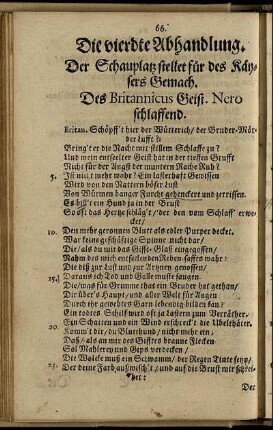 66.
Die vierdte Abhandlung.
Der Schauplatz stellet für des Käy-
sers Gemach.
Des Britannicus Geist. Nero
schlaffend.
Britan. Schöpff't hier der Wütterich/ der Bruder-Mör-
der Lufft?
Bring't er die Nacht mit stillem Schlaffe zu?
Und mein entseelter Geist hat in der tieffen Grufft
Nicht für der Angst der muntern Rache Ruh?
5. Ist nicht mehr wahr? Ein lasterhaft Gewissen
Wird von den Nattern böser Lust
Von Würmen banger Furcht gehenckert und zerrissen.
Es bill't ein Hund ja in der Brust
So oft das Hertze schläg't/ der den vom Schlaff' erwe-
cket/
10. Den mehr geronnen Blutt als edler Purper decket.
War keine geschäftige
Die/ als du mir das Giffe-Glaß eingegossen/
Nahm des mich entseelenden Reben-safftes wahr?
Die diß zur Lust und zur Artzney genossen/
15. Daraus ich Tod und Galle muste saugen.
Die/ was für Grimme that ein Bruder hat gethan/
Drüber's Haupt/ und aller Welt für Augen
Durch ihr gewebtes Garn lebendig bilden kan?
Ein todtes Schilf wird oft ja
20. Ein Schatten und ein Wind erschreck't die Ubelthäter.
Komm't dir/ du Bluthund/ nicht mehr ein/
Daß/ als an mir des Gifftes braune Flecken
Sol Mahlerey und Gyps verdecken/
Die Wolcke muß ein Schwamm/ der Regen Tinte seyn/
25. Der deine Farb auswisch't/ und auf die Brust mir schrei-
bet:
Der